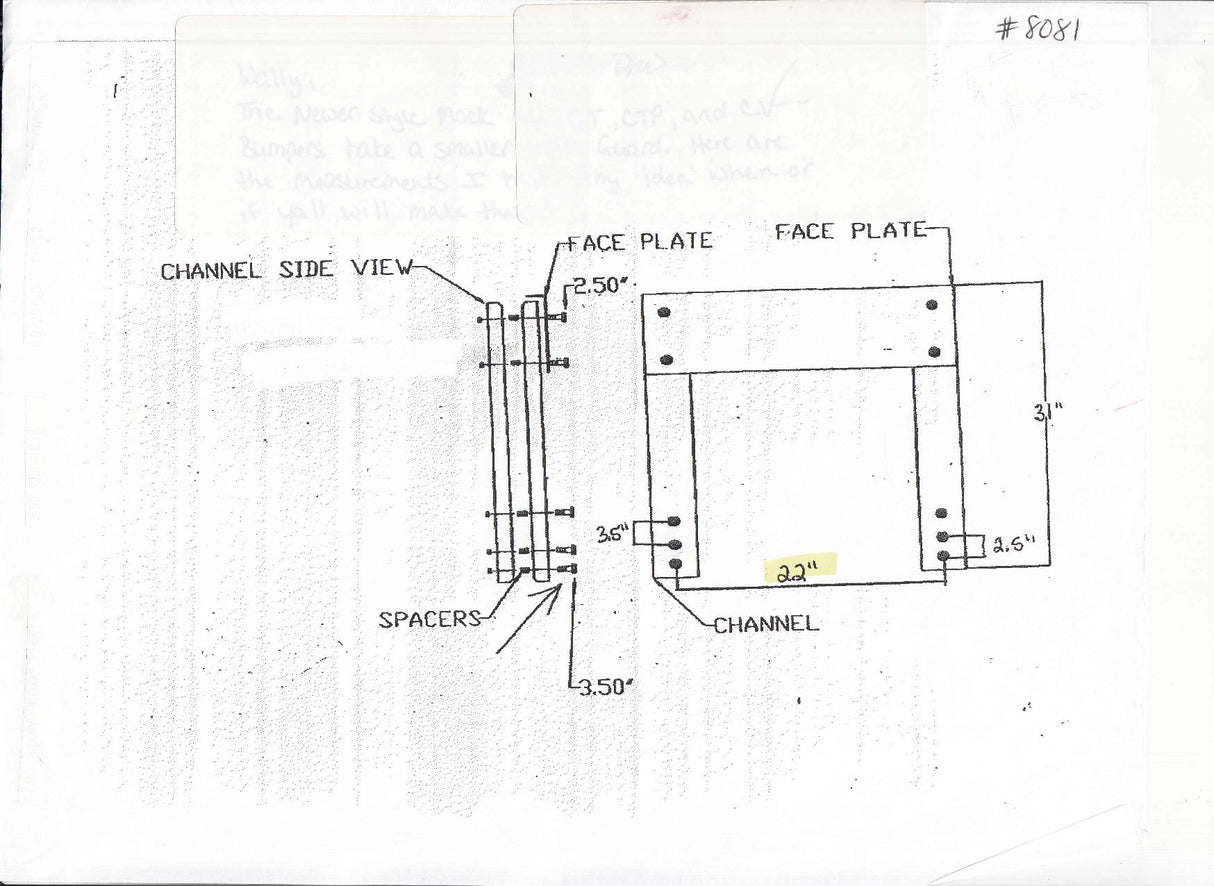 #8081
Wally,
The Newer Style Mack T, CTP, and CV
Bumpers take a smaller Guard. Here are
the measurements I any 'idea' when or
if yall will make
FACE PLATE
FACE PLATE
CHANNEL SIDE VIEW
2.50"
31"
3.5"
2.5"
22"
SPACERS
CHANNEL
3.50"